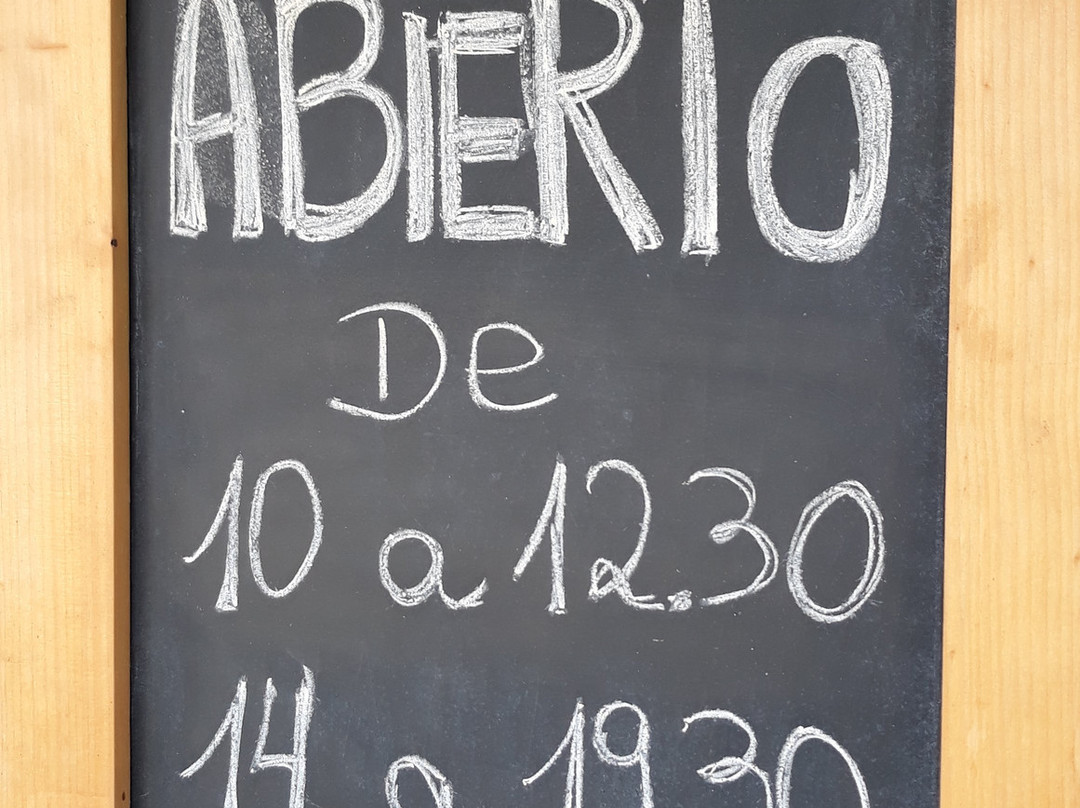 ABIERTO
De
10 a 12.30
14 a 1930